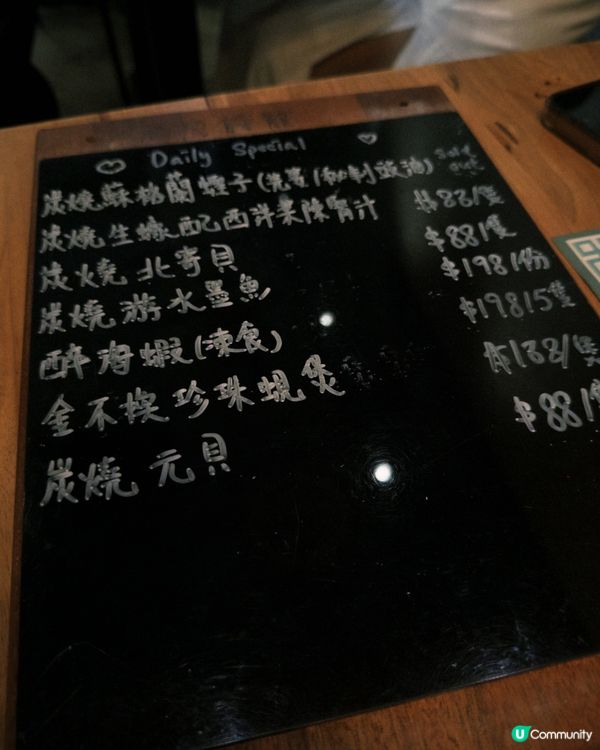 Daily Special
炭燒蘇格蘭蟶子(洗裏/秘制豉油) Sold out
炭燒生蠔配西洋菜陳腎汁 $88/隻
炭燒北寄貝 $88/隻
炭燒游水墨魚 $198/份
醉海蝦(凍食) $198/5隻
金不換珍珠蜆煲 $138/隻
炭燒元貝 $88/隻
U Community